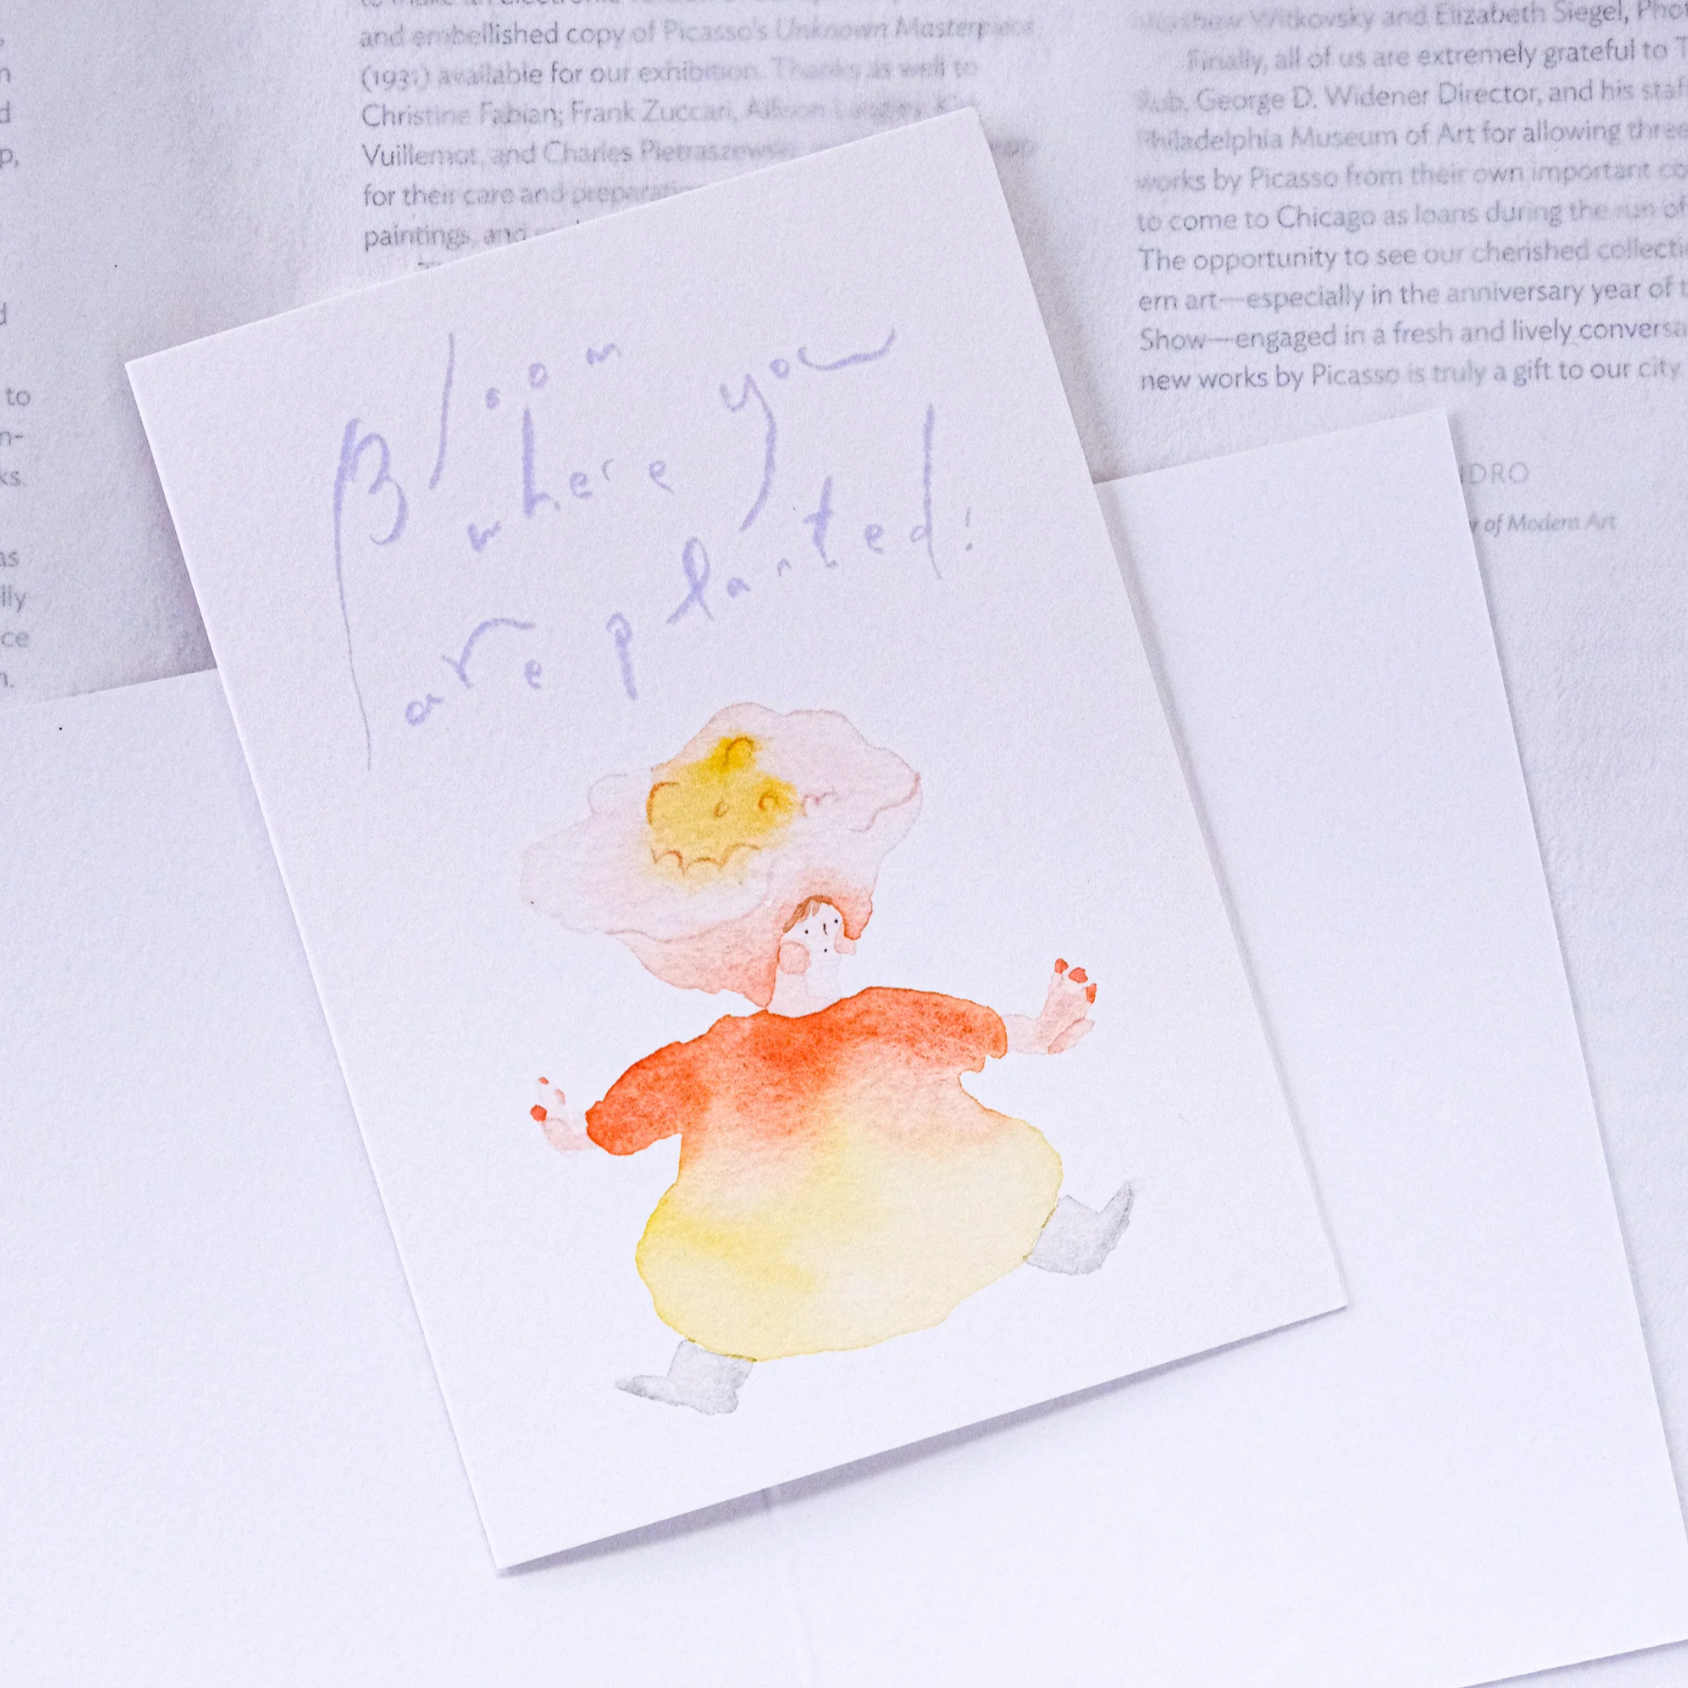 and embellished copy of Picasso's Unknown Masterpiece
(1931) available for our exhibition. Thanks as well to
Christine Fabian; Frank Zuccari, Allison Langley, Kirk
Vuillemot, and Charles Pietraszewski
for their care and preparation
paintings, and
Matthew Witkovsky and Elizabeth Siegel,
Finally, all of us are extremely grateful to
Rub, George D. Widener Director, and his staff
Philadelphia Museum of Art for allowing three
works by Picasso from their own important
to come to Chicago as loans during the run of
The opportunity to see our cherished
ern art—especially in the anniversary year of
Show—engaged in a fresh and lively
new works by Picasso is truly a gift to our city.
of Modern Art
to
ks.
as
Bloom
where you
are planted!